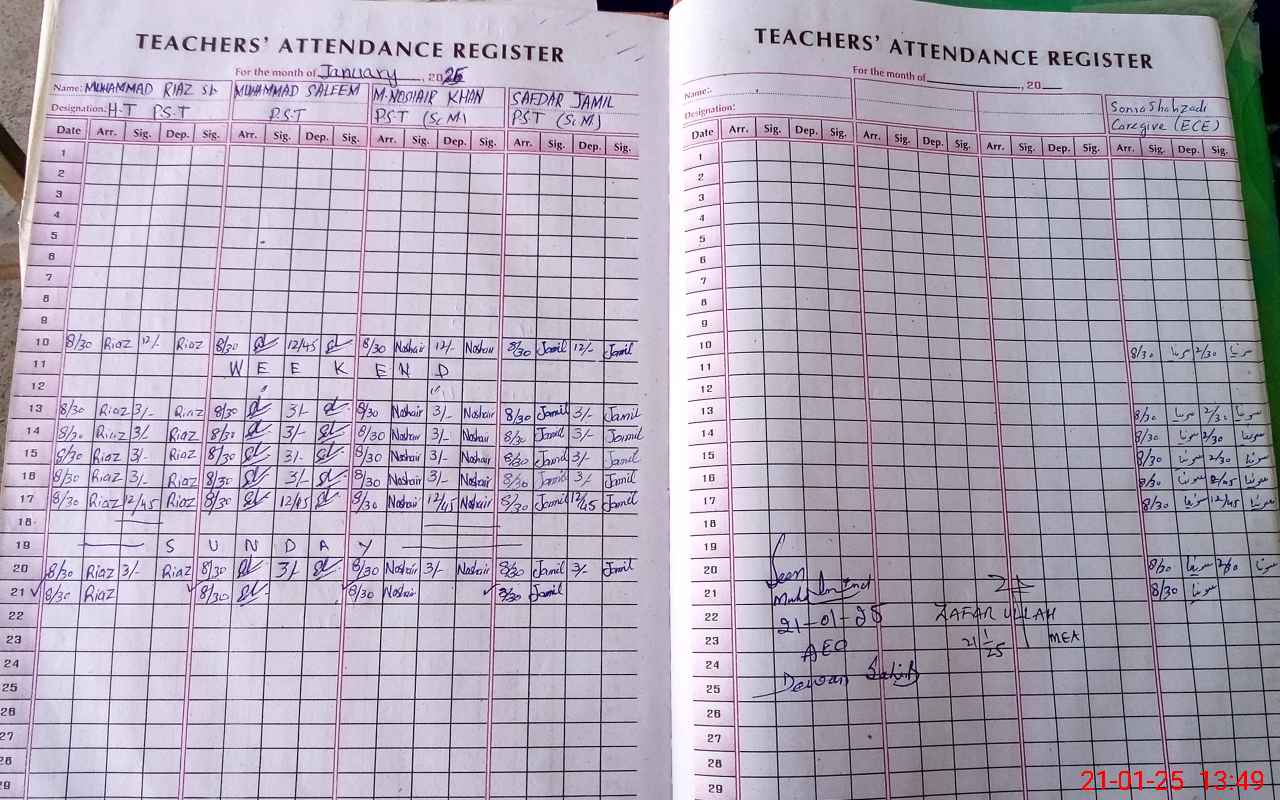 TEACHERS' ATTENDANCE REGISTER
For the month of January, 2025
Name: MUHAMMAD RIAZ Sb MUHAMMAD SALEEM M.NOSHAIR KHAN SAFDAR JAMIL
Designation: H-T P.S.T P.S.T P.S.T (S.M) P.S.T (S.M)
Date Arr. Sig. Dep. Sig. Arr. Sig. Dep. Sig. Arr. Sig. Dep. Sig. Arr. Sig. Dep. Sig.
1
2
3
4
5
6
7
8
9
10 8/30 Riaz 12/- Riaz 8/30 12/45 8/30 Noshair 12/- Noshair 8/30 Jamil 12/- Jamil
11 W E E K E N D
12
13 8/30 Riaz 3/- Riaz 8/30 3/- 8/30 Noshair 3/- Noshair 8/30 Jamil 3/- Jamil
14 8/30 Riaz 3/- Riaz 8/30 3/- 8/30 Noshair 3/- Noshair 8/30 Jamil 3/- Jamil
15 8/30 Riaz 3/- Riaz 8/30 3/- 8/30 Noshair 3/- Noshair 8/30 Jamil 3/- Jamil
16 8/30 Riaz 3/- Riaz 8/30 3/- 8/30 Noshair 3/- Noshair 8/30 Jamil 3/- Jamil
17 8/30 Riaz 12/45 Riaz 8/30 12/45 8/30 Noshair 12/45 Noshair 8/30 Jamil 12/45 Jamil
18
19 S U N D A Y
20 8/30 Riaz 3/- Riaz 8/30 3/- 8/30 Noshair 3/- Noshair 8/30 Jamil 3/- Jamil
21 8/30 Riaz 8/30 8/30 Noshair 8/30 Jamil
22
23
24
25
26
27
28
29
TEACHERS' ATTENDANCE REGISTER
For the month of , 20
Name:
Sonia Shahzadi
Designation:
Caregive (ECE)
Date Arr. Sig. Dep. Sig. Arr. Sig. Dep. Sig. Arr. Sig. Dep. Sig. Arr. Sig. Dep. Sig.
1
2
3
4
5
6
7
8
9
10 8/30 سونیا 2/30 سونیا
11
12
13 8/30 سونیا 2/30 سونیا
14 8/30 سونیا 2/30 سونیا
15 8/30 سونیا 2/30 سونیا
16 8/30 سونیا سونیا
17 8/30 سونیا 12/45 سونیا
18
19
20 8/30 سونیا سونیا
Seen
21 8/30 سونیا
22 21-01-25 ZAFAR ULLAH
23 AEO 21/1/25 MEA
24
25 Dewan Sahib
26
27
28
29
21-01-25 13:49